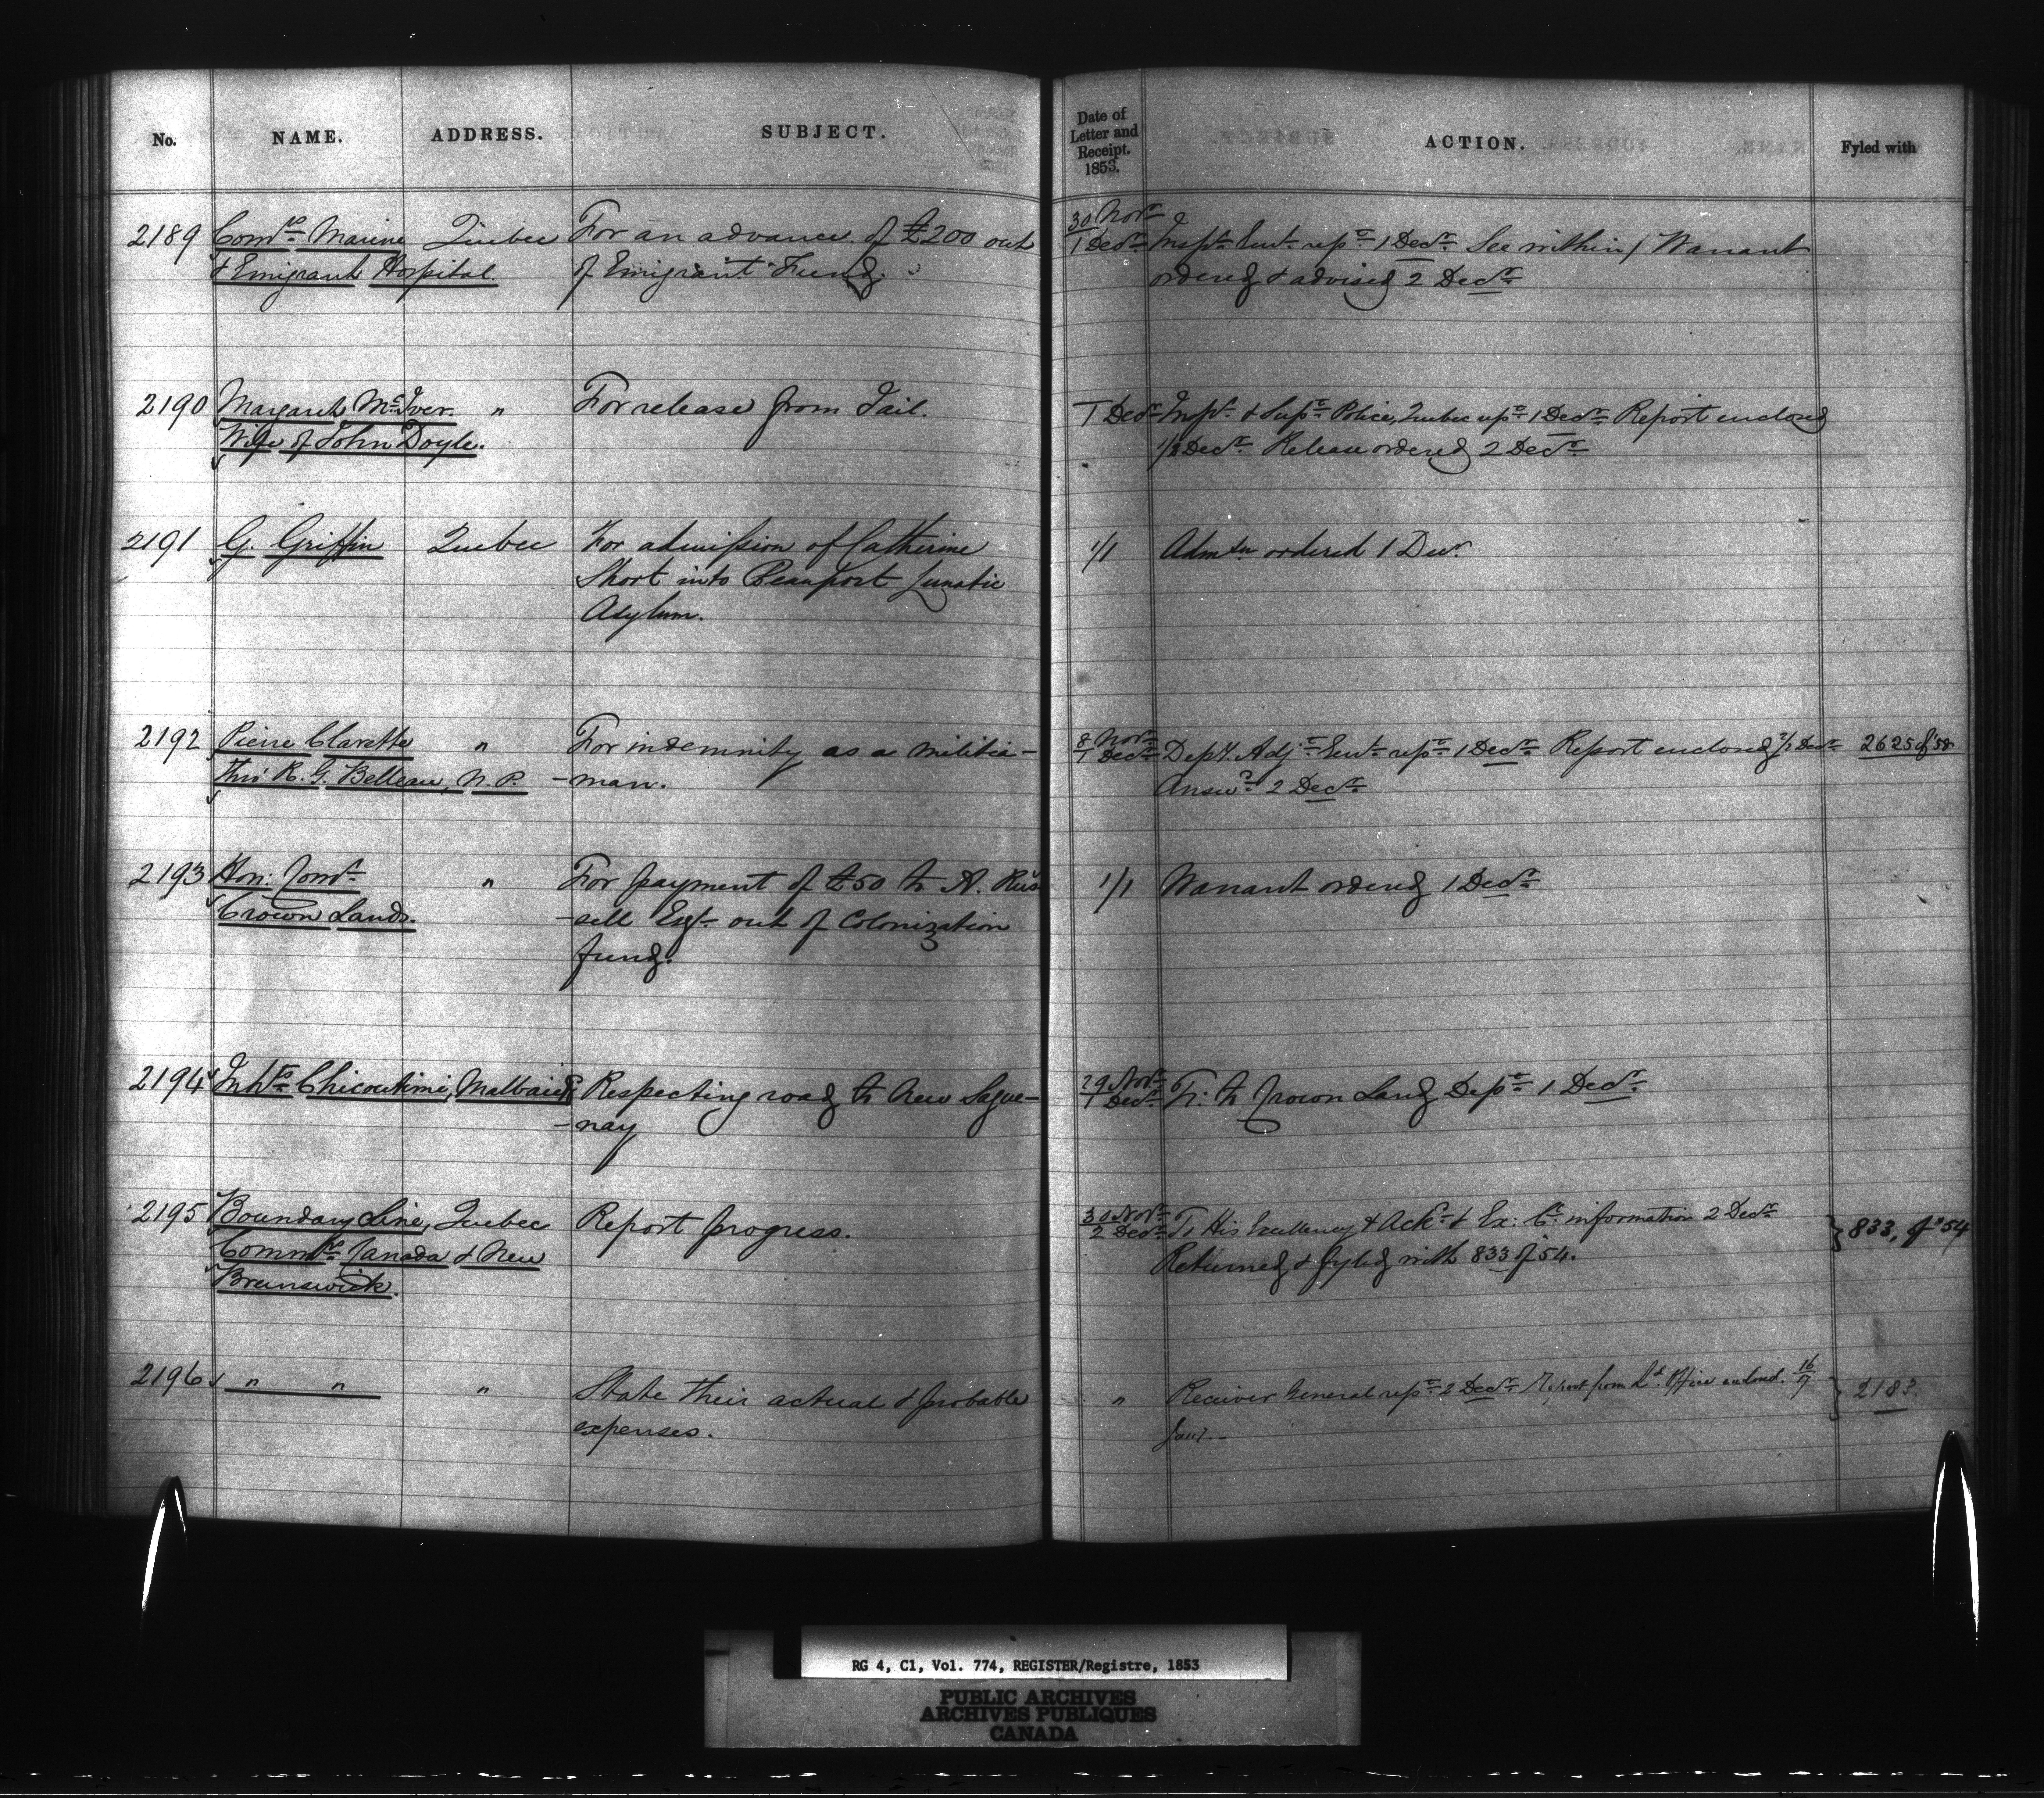 No. NAME. ADDRESS. SUBJECT. Date of Letter and Receipt. 1853. ACTION. Fyled with
2189 Comrs Marine Quebec For an advance of £200 out 30 Novr
& Emigrant Hospital. of Emigrant Fund. 1 Decr Inspr Genl repd 1 Decr See within / Warrant
ordered & advised 2 Decr
2190 Margaret McIver " For release from Jail. 1 Decr Inspr & Supt Police, Quebec 1 Decr Report enclosed
Wife of John Doyle. Decr Release ordered 2 Decr
2191 G. Griffin Quebec For admission of Catherine 1/1 Admtn ordered 1 Decr
Short into Beauport Lunatic
Asylum.
2192 Pierre Clarette " For indemnity as a militia- 8 Novr
thro' R. G. Belleau, N. P. -man. 1 Decr Depy. Adjt Genl 1 Decr Report enclosed 2/2 Decr 2625 of
Answd 2 Decr
2193 Hon: Comr " For payment of £50 to A. Rus 1/1 Warrant ordered 1 Decr
Crown Lands. -sell Esqr out of Colonization
fund.
2194 Inhts Chicoutimi, Malbaie & Respecting road to new Sague- 29 Novr
-nay 1 Decr to Crown Land Dept 1 Decr
2195 Boundary Line, Quebec Report progress. 30 Novr
Commrs Canada & New 2 Decr To His Excellency & Ackd & Ex: Cl information 2 Decr 833, of '54
Brunswick. Returned & fyled with 833 of 54.
2196 " " " State their actual & probable " Receiver General 2 Decr Report from Office enclosed. 16/17 2183.
expenses. Jany.
RG 4, C1, Vol. 774, REGISTER/Registre, 1853
PUBLIC ARCHIVES
ARCHIVES PUBLIQUES
CANADA